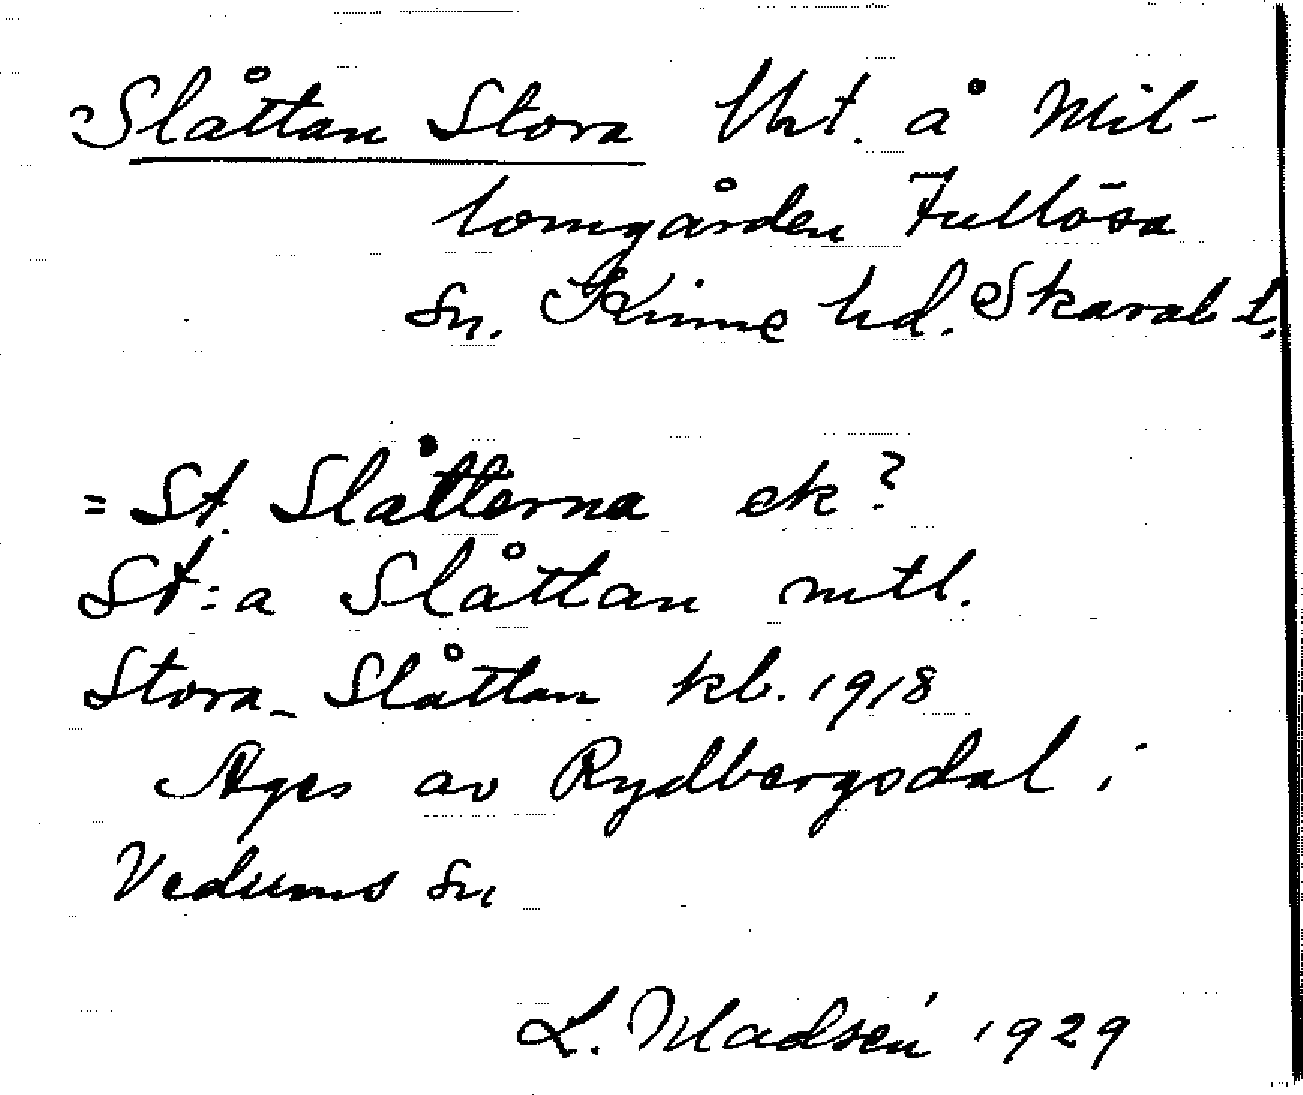 Slåttan Stora Utt. å Mil-
lomgården Fullösa
sn. Kinne hd. Skarab l.
= St. Slåtterna ek?
St:a Slåttan mtl.
Stora Slåttan kb. 1918
Äges av Rydbergsdal i
Vedums sn
L. Madsén 1929